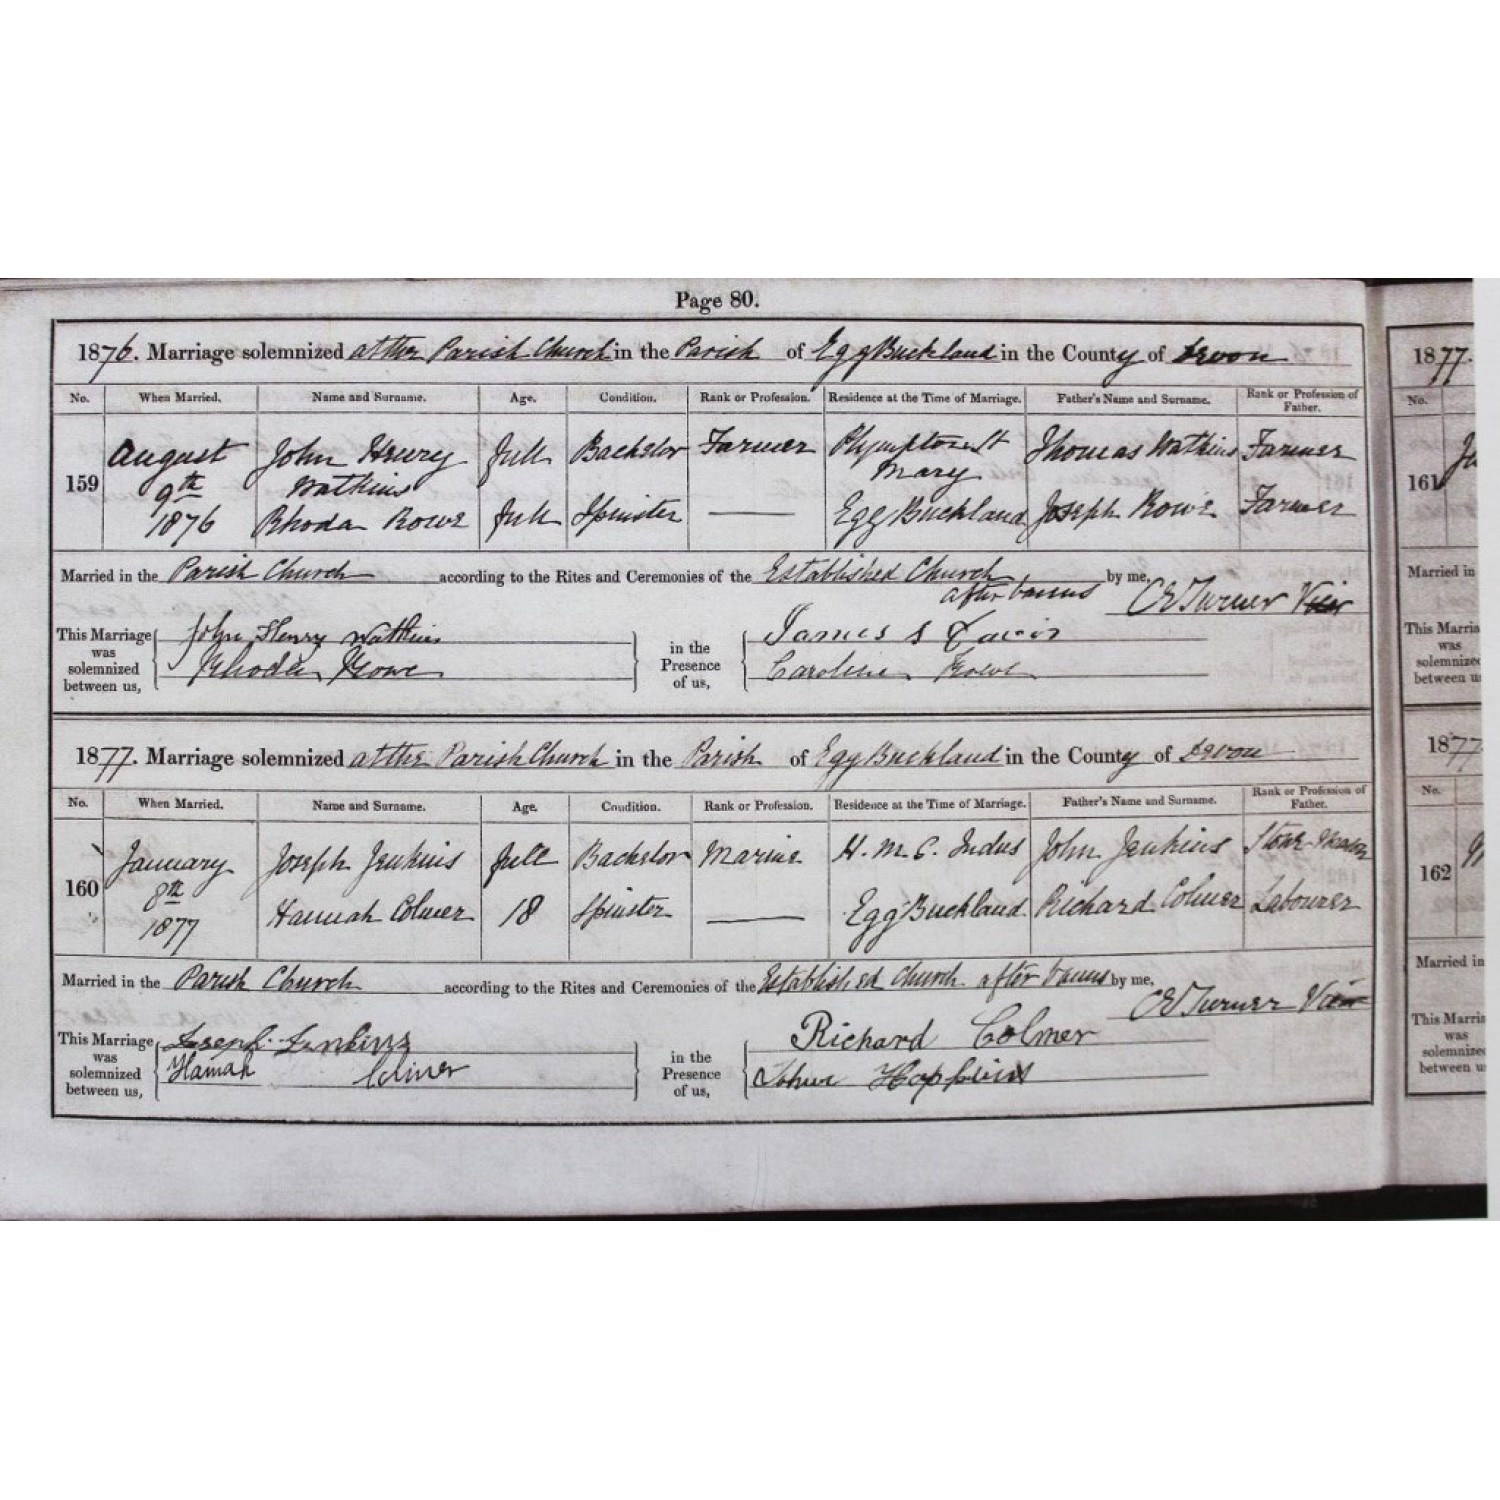 Page 80.
1876. Marriage solemnized at the Parish Church in the Parish of Egg Buckland in the County of Devon
No. When Married. Name and Surname. Age. Condition. Rank or Profession. Residence at the Time of Marriage. Father's Name and Surname. Rank or Profession of Father.
159 August 9th 1876 John Henry Watkins full Bachelor Farmer Plympton St Mary Thomas Watkins Farmer
Rhoda Rowe full Spinster Egg Buckland Joseph Rowe Farmer
Married in the Parish Church according to the Rites and Ceremonies of the Established Church after banns by me, C E Turner Vicar
This Marriage was solemnized between us, John Henry Watkins Rhoda Rowe in the Presence of us, James S Caroline Rowe
1877. Marriage solemnized at the Parish Church in the Parish of Egg Buckland in the County of Devon
No. When Married. Name and Surname. Age. Condition. Rank or Profession. Residence at the Time of Marriage. Father's Name and Surname. Rank or Profession of Father.
160 January 8th 1877 Joseph Jenkins full Bachelor Marine H.M.S. Indus John Jenkins Stone Mason
Hannah Colmer 18 Spinster Egg Buckland Richard Colmer Labourer
Married in the Parish Church according to the Rites and Ceremonies of the Established Church after banns by me, C E Turner Vicar
This Marriage was solemnized between us, Joseph Jenkins Hannah Colmer in the Presence of us, Richard Colmer Hopkins
1877.
No.
161
Married in
This Marria
was
solemnize
between u
1877
No.
162
Married in
This Marria
was
solemnize
between u